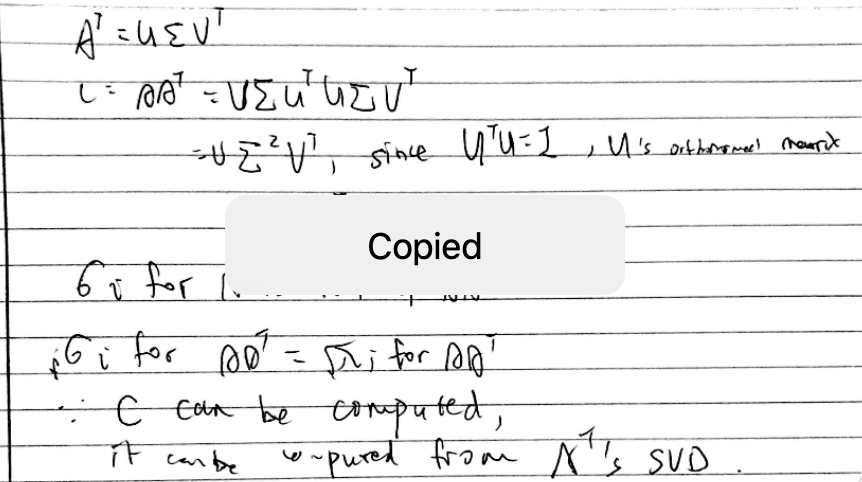 Aᵀ = UΣVᵀ
C = AAᵀ = VΣUᵀUΣVᵀ
= VΣ²Vᵀ, since UᵀU = I, U's orthonormal matrix
Copied
σi for
σi for AAᵀ = √λi for AAᵀ
∴ C can be computed,
it can be computed from Aᵀ's SVD.